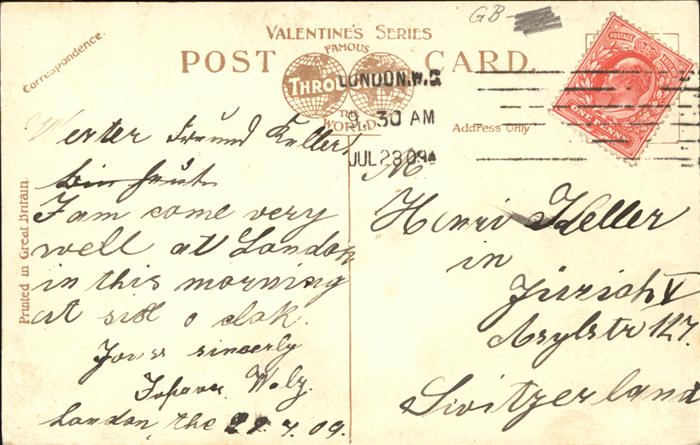 GB
VALENTINE'S SERIES
POST CARD
FAMOUS
THRO
THE
WORLD
Correspondence.
Address Only
Printed in Great Britain.
LONDON. W.C
9 30 AM
JUL 23 09
POSTAGE
ONE PENNY
Werter Freund Keller!
bin heute
I am come very
well at London
in this morning
at six o clok.
Yours sincerly
Waly.
London, the 22. 7. 09.
M
Henri Keller
in
Zürich V
Asylstr 127.
Switzerland